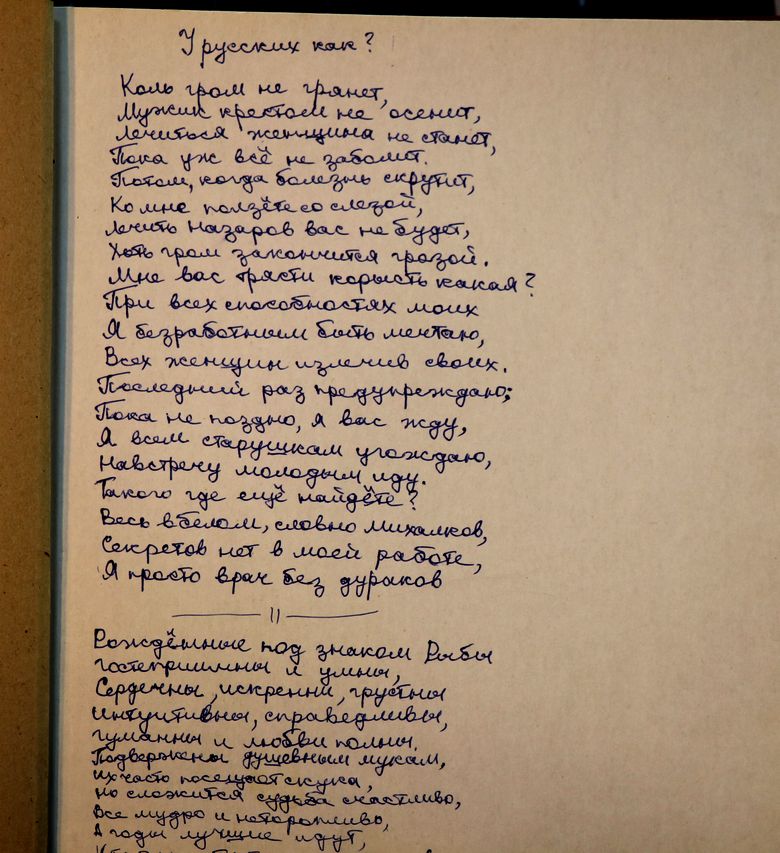 У русских как?
Коль гром не грянет,
Мужик крестом не осенит,
Лечиться женщина не станет,
Пока уж всё не заболит.
Потом, когда болезнь скрутит,
Ко мне ползёте со слезой,
Лечить Назаров вас не будет,
Хоть гром закончится грозой.
Мне вас трясти корысть какая?
При всех способностях моих
Я безработным быть мечтаю,
Всех женщин излечив своих.
Последний раз предупреждаю;
Пока не поздно, я вас жду,
Я всем старушкам угождаю,
Навстречу молодым иду.
Такого где ещё найдёте?
Весь в белом, словно Михалков,
Секретов нет в моей работе,
Я просто врач без дураков
Рождённые под знаком Рыбы
гостеприимны и умны,
Сердечны, искренни, грустны
интуитивны, справедливы,
гуманны и любви полны.
Подвержены душевным мукам,
их часто посещает скука,
но сложится судьба счастливо,
Все мудро и неторопливо,
А годы лучшие идут,